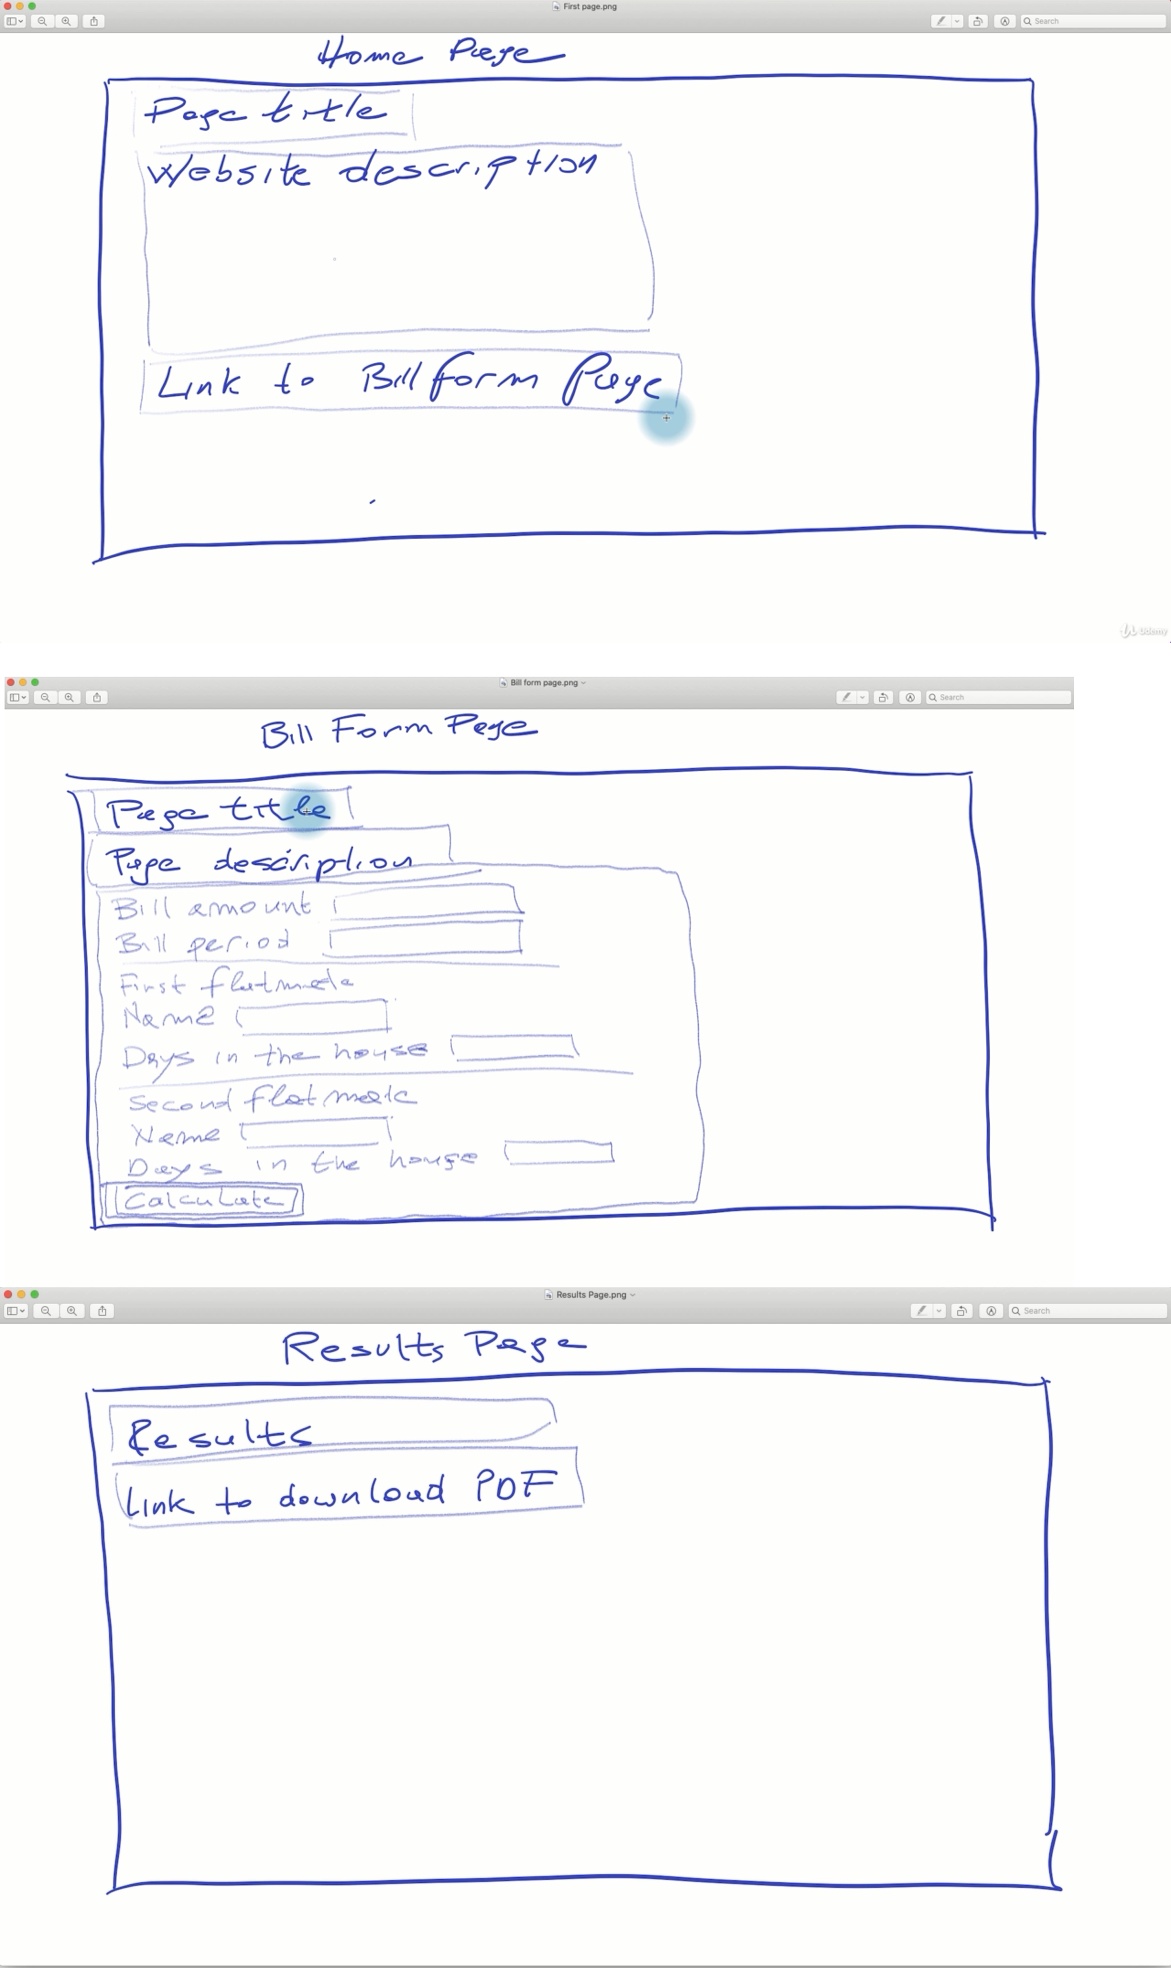 First page.png
Search
Home Page
Page title
Website description
Link to Bill form Page
Udemy
Bill form page.png
Search
Bill Form Page
Page title
Page description
Bill amount
Bill period
First flatmate
Name
Days in the house
Second flatmate
Name
Days in the house
Calculate
Results Page.png
Search
Results Page
Results
Link to download PDF